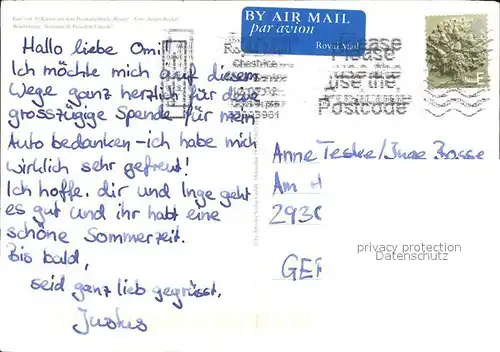 BY AIR MAIL
par avion
Royal Mail
Hallo liebe Omi!
Ich möchte mich auf diesem
Wege ganz herzlich für deine
grosszügige Spende für mein
Auto bedanken - ich habe mich
wirklich sehr gefreut!
Ich hoffe, dir und Inge geht
es gut und ihr habt eine
schöne Sommerzeit.
Bis bald,
seid ganz lieb gegrüsst,
Justus
Please
use the
Postcode
Anne Teske/Inge
Am
293
GER
privacy protection
Datenschutz